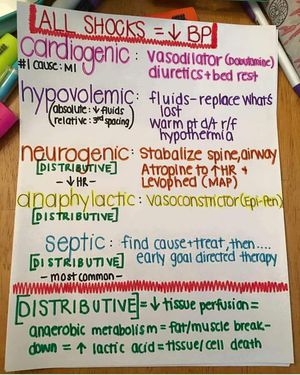 ALL SHOCKS = ↓ BP
cardiogenic : vasodilator (Dobutamine)
#1 cause: MI diuretics + bed rest
hypovolemic : fluids - replace what's
(absolute: ↓ fluids) lost
(relative: 3rd spacing) Warm pt d/t r/f
hypothermia
neurogenic : Stabalize spine, airway
[DISTRIBUTIVE] Atropine to ↑ HR +
- ↓ HR - Levophed (MAP)
anaphylactic : vasoconstrictor (Epi-Pen)
[DISTRIBUTIVE]
septic : find cause + treat, then....
[DISTRIBUTIVE] early goal directed therapy
- most common -
[DISTRIBUTIVE] = ↓ tissue perfusion =
anaerobic metabolism = fat/muscle break-
down = ↑ lactic acid = tissue/cell death